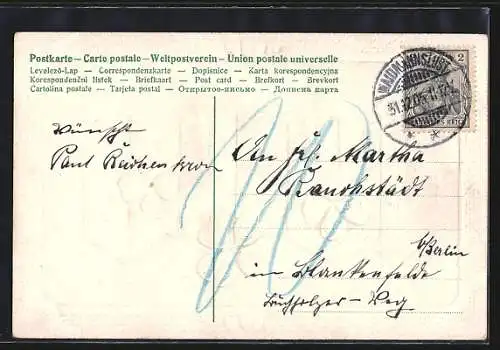 Postkarte – Carte postale – Weltpostverein – Union postale universelle
Levelező-Lap — Correspondenzkarte — Dopisnice — Karta korespondencyjna
Korespondenční lístek — Briefkaart — Post card — Brefkort — Brevkort
Cartolina postale — Tarjeta postal — Открытое-письмо — Дописна карта
2
31.12.
Wünscht
Paul
An Frl. Martha
Rauchstädt
b/Berlin
in Blankenfelde
Buchholzer-Weg
10